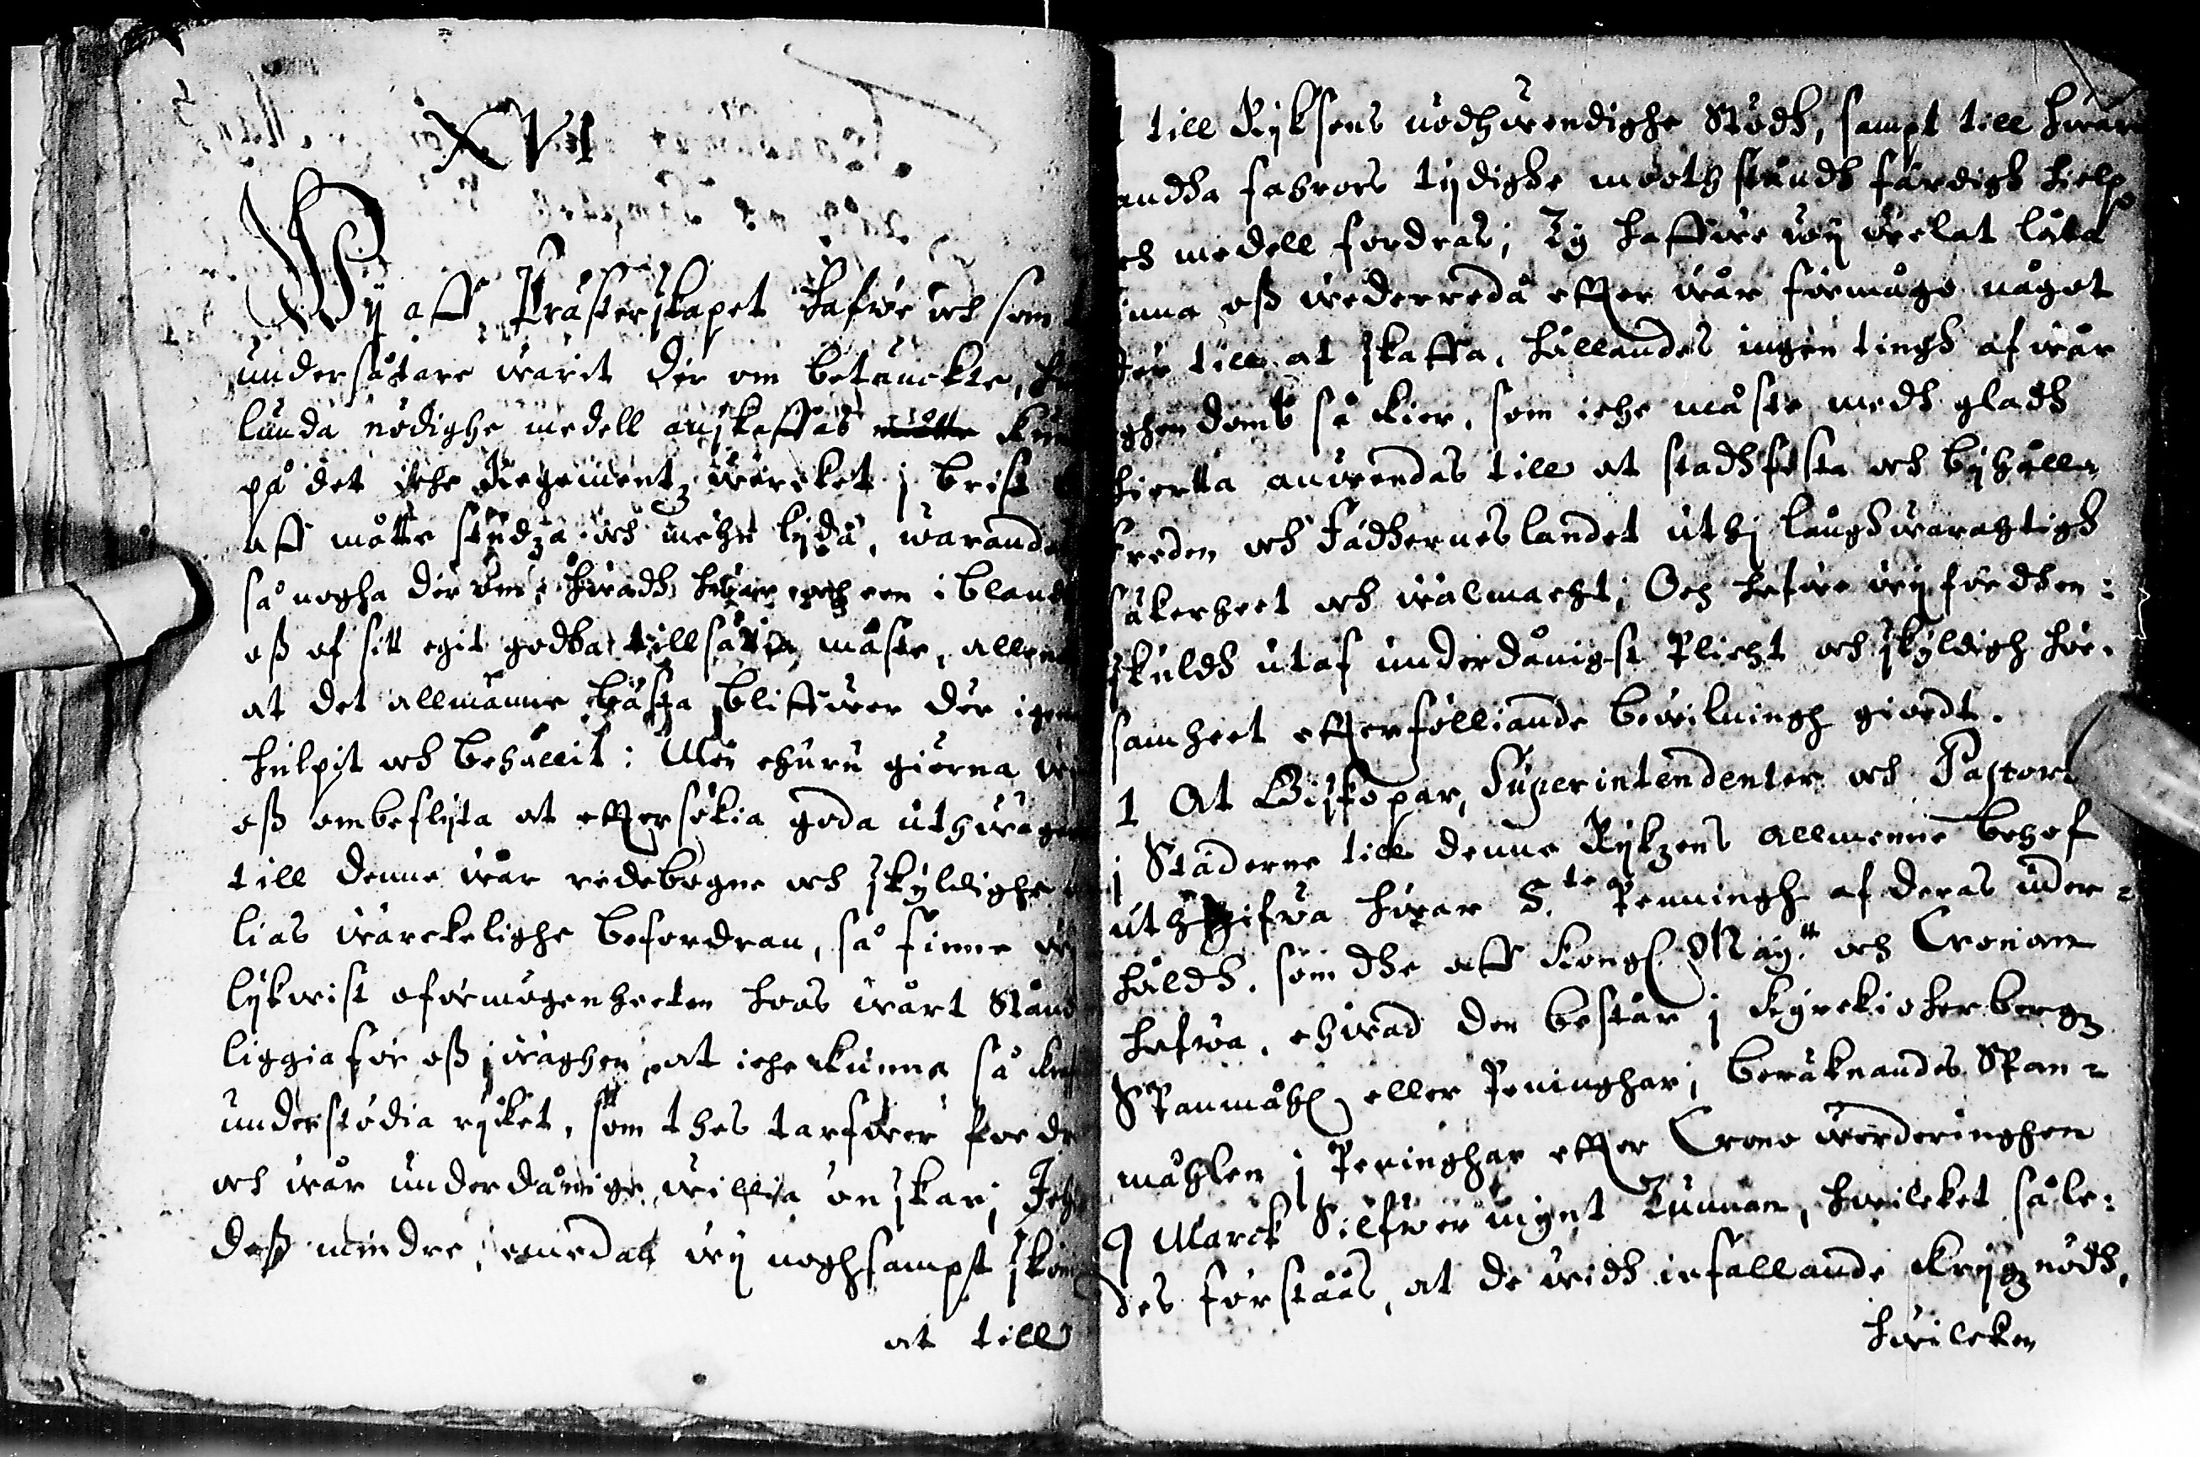 XVI
Wij aff Prästerskapet hafve och som
undersåtare warit der om betänckte,
lunda nödighe medell anskaffas måtte
på det icke Regementz wärcket i brist
aff måtte stydza och mehn lijda, warande
så nogha der om, hwadh hwar och een i bland
oss af sitt egit godha tillsättia måste, allena
at det allmänne bästa bliffwer der igen
hulpit och behållit: Men ehuru giärna wij
oss ombeflijta at efftersökia goda uthwägar
till denne wår redebogne och skyldighe
lias wärckelighe befordran, så finne wij
lijkwist oförmögenheeten hoos wårt Stånd
liggia för oss i wäghen, at icke kunna så
understödia rijket, som thes tarfwer fordrar
och wår underdånige willia önskar; Icke
dess mindre, emedan wij noghsampt
at till
till Rijksens nödhwendighe Stödh, sampt till hwar
andra fahrors tijdighe mooth ståndh färdigh hielp
och medell fordras; Ty haffwe wij welat låta
finna oss wederreda effter wår förmågo något
der till at skaffa, hållandes ingen tingh af wår
ghendomb så kier, som icke måste medh gladh
hierta anwendas till at stadhfesta och byhålla
freden och Fädhernes landet uthi långhwarachtigh
säkerheet och wälmacht; Och hafwe wij för dhen:
skuldh utaf underdånigst Plicht och skyldigh hör-
samheet effterfölliande bewilningh giordt.
1 At Biskopar, Superintendenter och Pastorer
i Städerne till denne Rijkzens allmenne behof
uthgifwa hwar 8.te Penningh af deras under-
håldh, som dhe aff Kongl. Maij:tt och Cronan
hafwa, ehwad den består i Kyrckioherbergz
Spanmåhl eller Peninghar; beräknandes Span-
måhlen i Peninghar effter Crono werderinghen
9 Marck Silfwer mynt Tunnan, hwilcket såle:
des förståås, at de widh infallande Krijgz nödh,
hwilcken